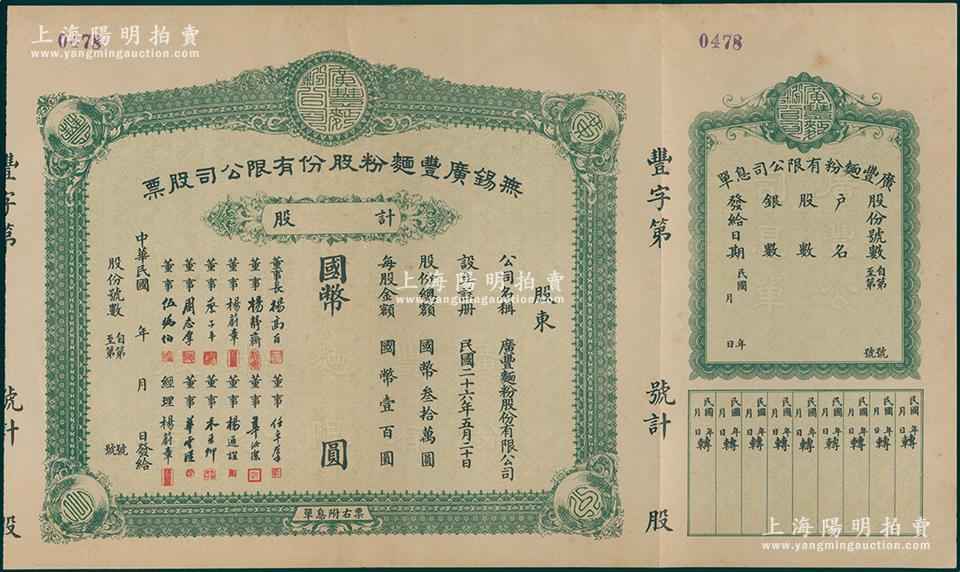 上海陽明拍賣
www.yangmingauction.com
0478
0478
廣豐麵粉公司
無錫廣豐麵粉股份有限公司股票
計 股
股東
公司名稱 廣豐麵粉股份有限公司
設立註冊 民國二十六年五月二十日
股份總額 國幣叁拾萬圓
每股金額 國幣壹百圓
國幣 圓
董事長 楊高百
董事 楊靜齋
董事 楊蔚章
董事 蔡子平
董事 周志厚
董事 伍
董事
董事
董事 楊通誼
董事
董事 華
經理 楊蔚章
中華民國 年 月 日發給
股份號數 自第 號
至第 號
票右附息單
豐字第 號計 股
豐字第 號計 股
廣豐麵粉公司
廣豐麵粉有限公司息單
股份號數 自第 號
至第 號
戶名
股數
銀數
發給日期 民國 年 月 日
民國 年 月 日轉
民國 年 月 日轉
民國 年 月 日轉
民國 年 月 日轉
民國 年 月 日轉
民國 年 月 日轉
民國 年 月 日轉
上海陽明拍賣
www.yangmingauction.com
上海陽明拍賣
www.yangmingauction.com